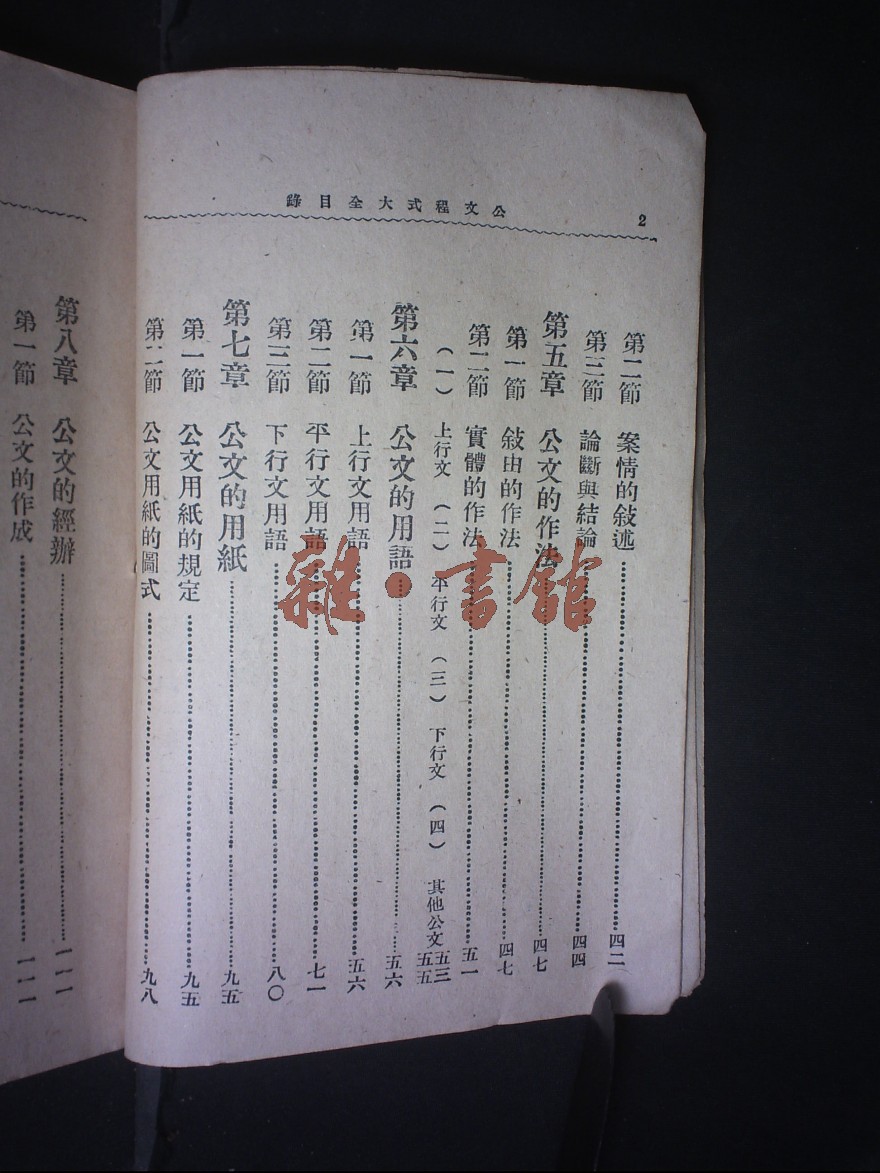 公文程式大全目錄
2
第二節　案情的敍述……四二
第三節　論斷與結論……四四
第五章　公文的作法……四七
第一節　敍由的作法……四七
第二節　實體的作法……五一
（一）上行文（二）平行文（三）下行文（四）其他公文五三　五五
第六章　公文的用語……五六
第一節　上行文用語……五六
第二節　平行文用語……七一
第三節　下行文用語……八〇
第七章　公文的用紙……九五
第一節　公文用紙的規定……九五
第二節　公文用紙的圖式……九八
第八章　公文的經辦……一一一
第一節　公文的作成……一一一
雜·書館